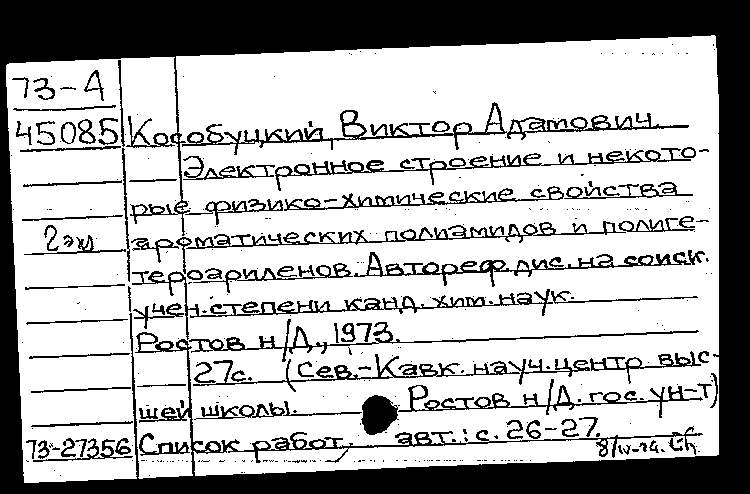 73-А
45085 Кособуцкий, Виктор Адамович.
Электронное строение и некото-
рые физико-химические свойства
2 экз ароматических полиамидов и полиге-
тероариленов. Автореф. дис. на соиск.
учен. степени канд. хим. наук.
Ростов н/Д., 1973.
27с. (Сев.-Кавк. науч. центр выс-
шей школы. Ростов н/Д. гос. ун-т)
73-27356 Список работ, авт.: с. 26-27.
8/IV-74.